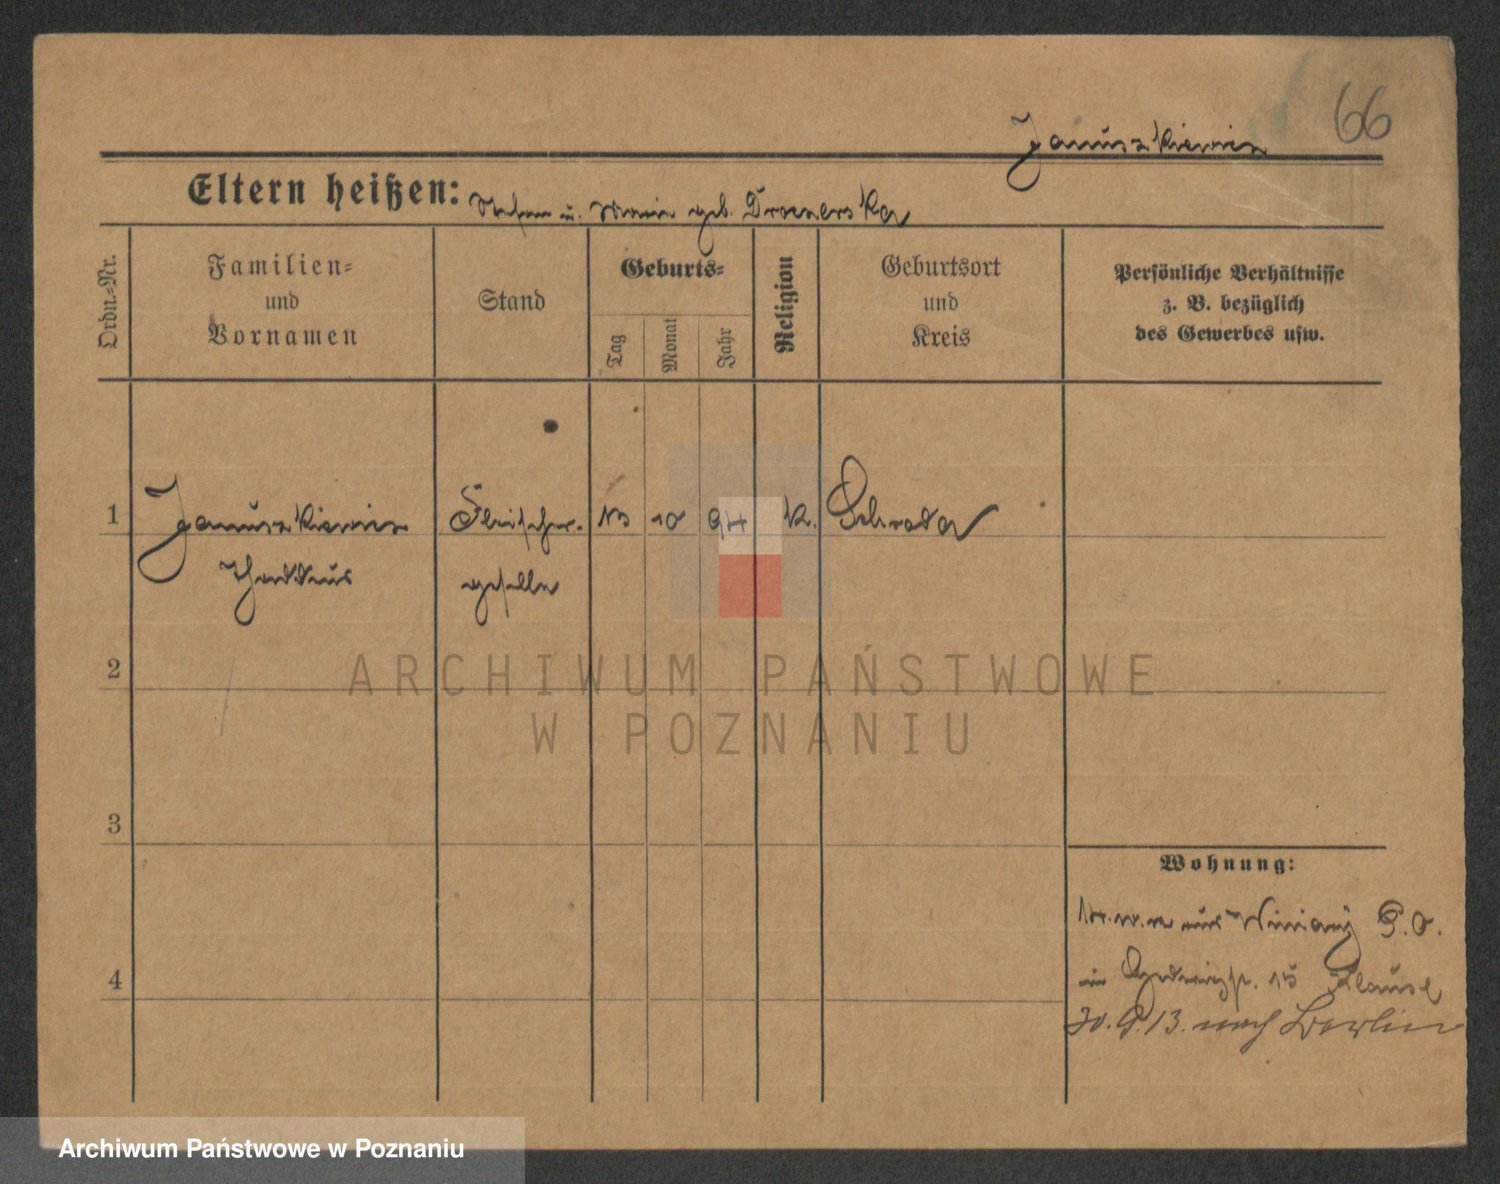 66
Januszkiewicz
Eltern heißen: Stefan u. Maria geb. Drozerska
Ordn.-Nr.
Familien=
und
Vornamen
Stand
Geburts=
Tag
Monat
Jahr
Religion
Geburtsort
und
Kreis
Persönliche Verhältnisse
z. B. bezüglich
des Gewerbes usw.
1 Januszkiewicz Fleischer- 10 94 K. Schroda
Thaddäus geselle
2
ARCHIWUM PAŃSTWOWE
W POZNANIU
3
Wohnung:
aus Winiary P.O.
4
in 15
30. 9. 13. nach Berlin
Archiwum Państwowe w Poznaniu